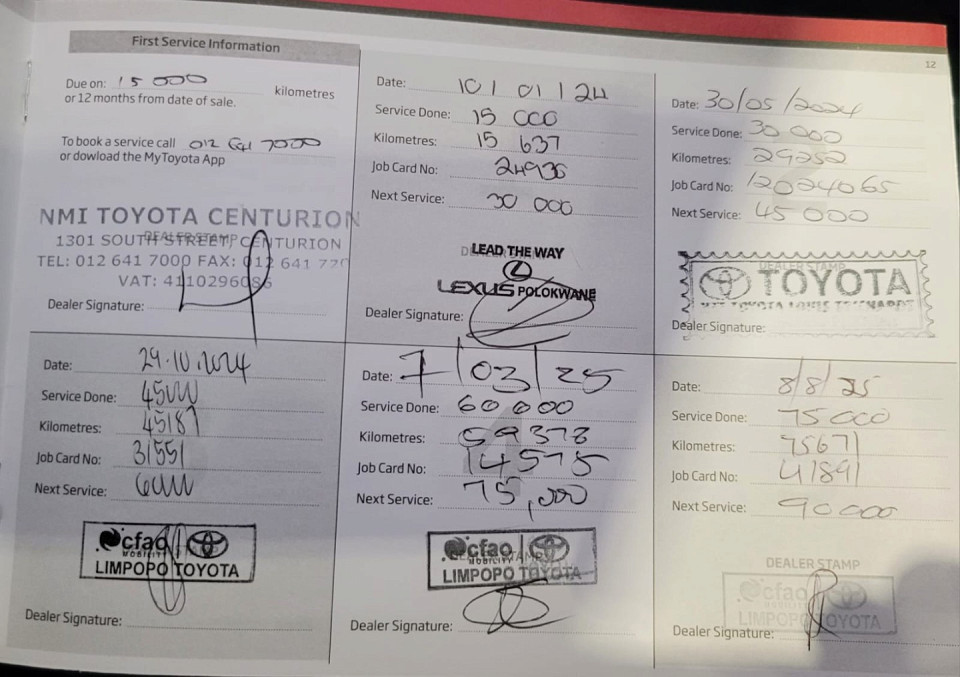 12
First Service Information
Due on: 15 000 kilometres
or 12 months from date of sale.
To book a service call 012 641 7000
or dowload the MyToyota App
NMI TOYOTA CENTURION
1301 SOUTH STREET, CENTURION
DEALER STAMP
TEL: 012 641 7000 FAX: 012 641 770
VAT: 4110296086
Dealer Signature:
Date: 10/01/24
Service Done: 15 000
Kilometres: 15 637
Job Card No: 24936
Next Service: 30 000
LEAD THE WAY
LEXUS POLOKWANE
Dealer Signature:
Date: 30/05/2024
Service Done: 30 000
Kilometres: 29252
Job Card No: 12024065
Next Service: 45 000
DEALER STAMP
TOYOTA
NMI TOYOTA LOUIS TRICHARDT
Dealer Signature:
Date: 29.10.2024
Service Done: 45000
Kilometres: 45187
Job Card No: 31551
Next Service: 60000
cfao
MOBILITY
LIMPOPO TOYOTA
Dealer Signature:
Date: 7/03/25
Service Done: 60 000
Kilometres: 59378
Job Card No: 14575
Next Service: 75,000
cfao
MOBILITY
LIMPOPO TOYOTA
Dealer Signature:
Date: 8/8/25
Service Done: 75000
Kilometres: 75671
Job Card No: 41891
Next Service: 90000
DEALER STAMP
cfao
MOBILITY
LIMPOPO TOYOTA
Dealer Signature: